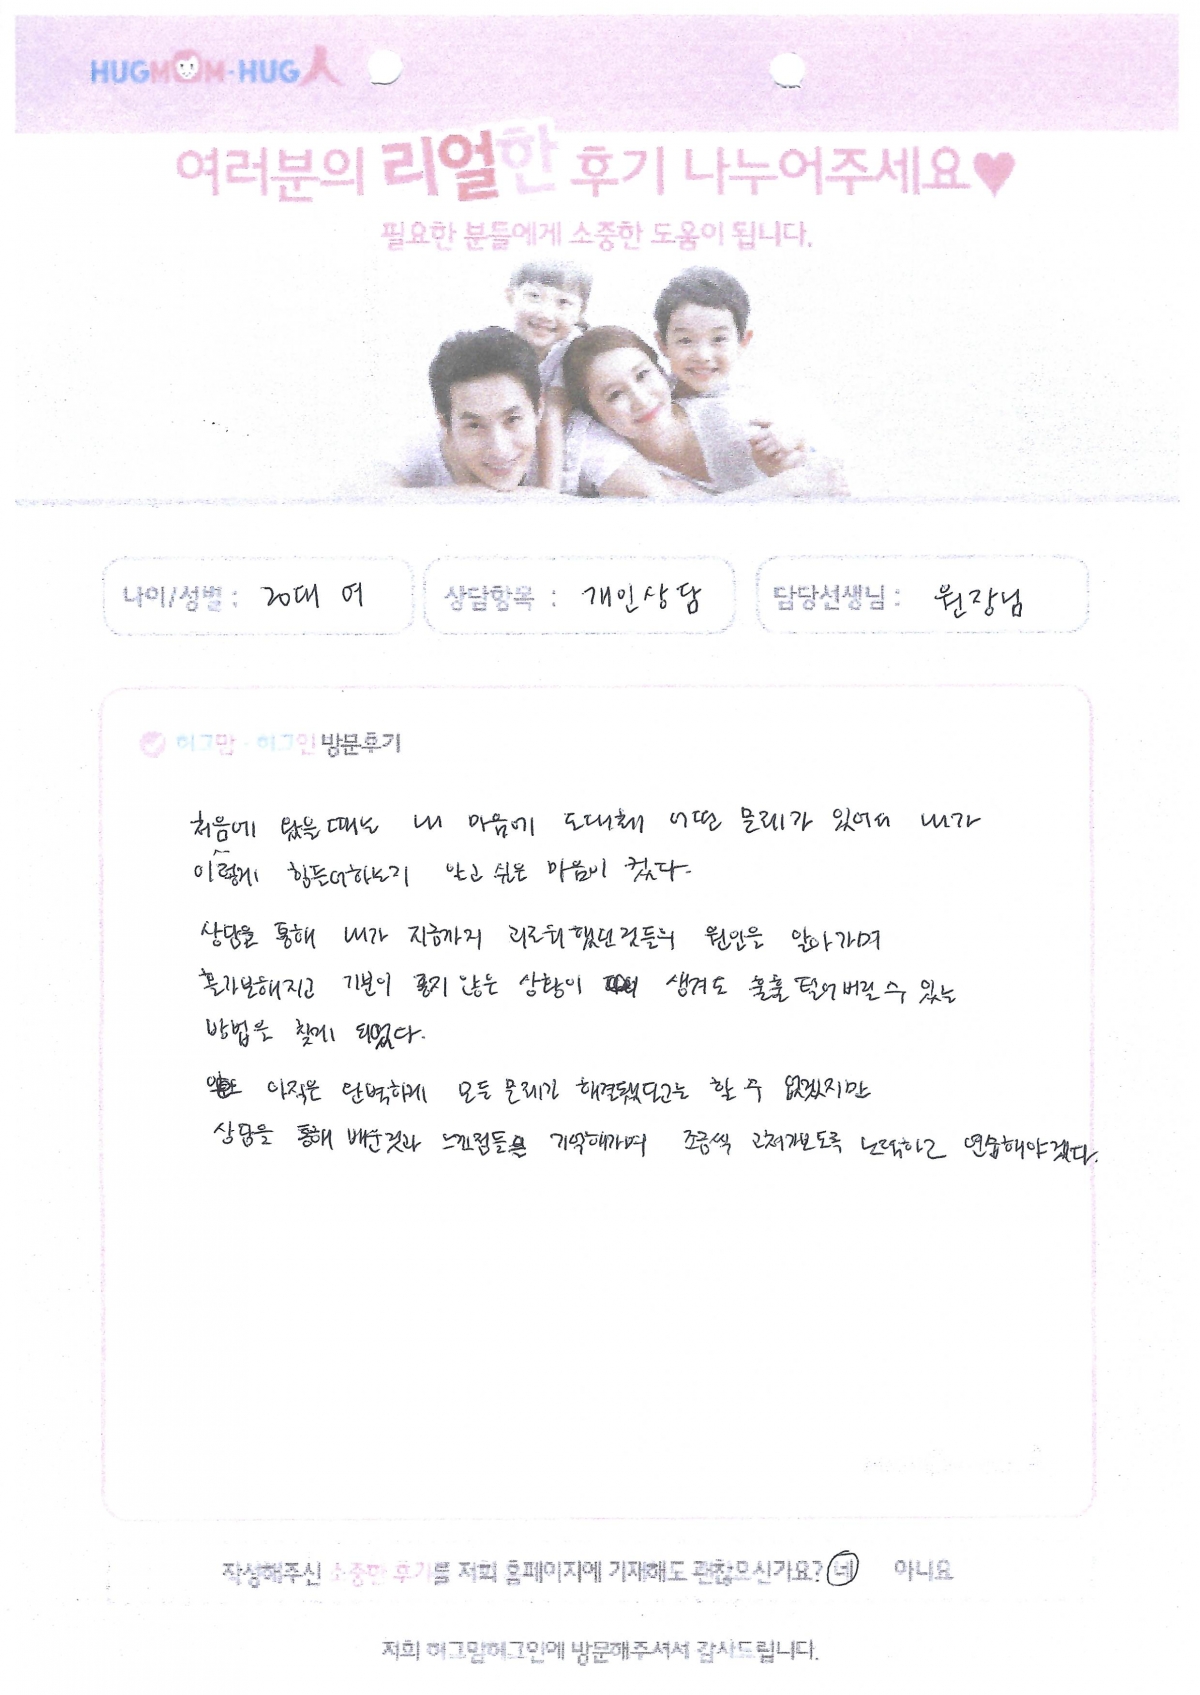 HUGMOM·HUG人
여러분의 리얼한 후기 나누어주세요♥
필요한 분들에게 소중한 도움이 됩니다.
나이/성별 : 20대 여
상담항목 : 개인상담
담당선생님 : 원장님
허그맘·허그인 방문후기
처음에 왔을때는 내 마음에 도대체 어떤 문제가 있어서 내가
이렇게 힘든어하는지 알고 싶은 마음이 컸다.
상담을 통해 내가 지금까지 괴로워했던것들의 원인을 알아가며
홀가분해지고 기분이 좋지 않은 상황이 생겨도 훌훌 털어버릴 수 있는
방법을 찾게 되었다.
아직은 완벽하게 모든 문제가 해결됐다고는 할 수 없겠지만
상담을 통해 배운것과 느낀점들을 기억해가며 조금씩 고쳐가보도록 노력하고 연습해야겠다.
작성해주신 소중한 후기를 저희 홈페이지에 기재해도 괜찮으신가요? 네 아니요
저희 허그맘허그인에 방문해주셔서 감사드립니다.